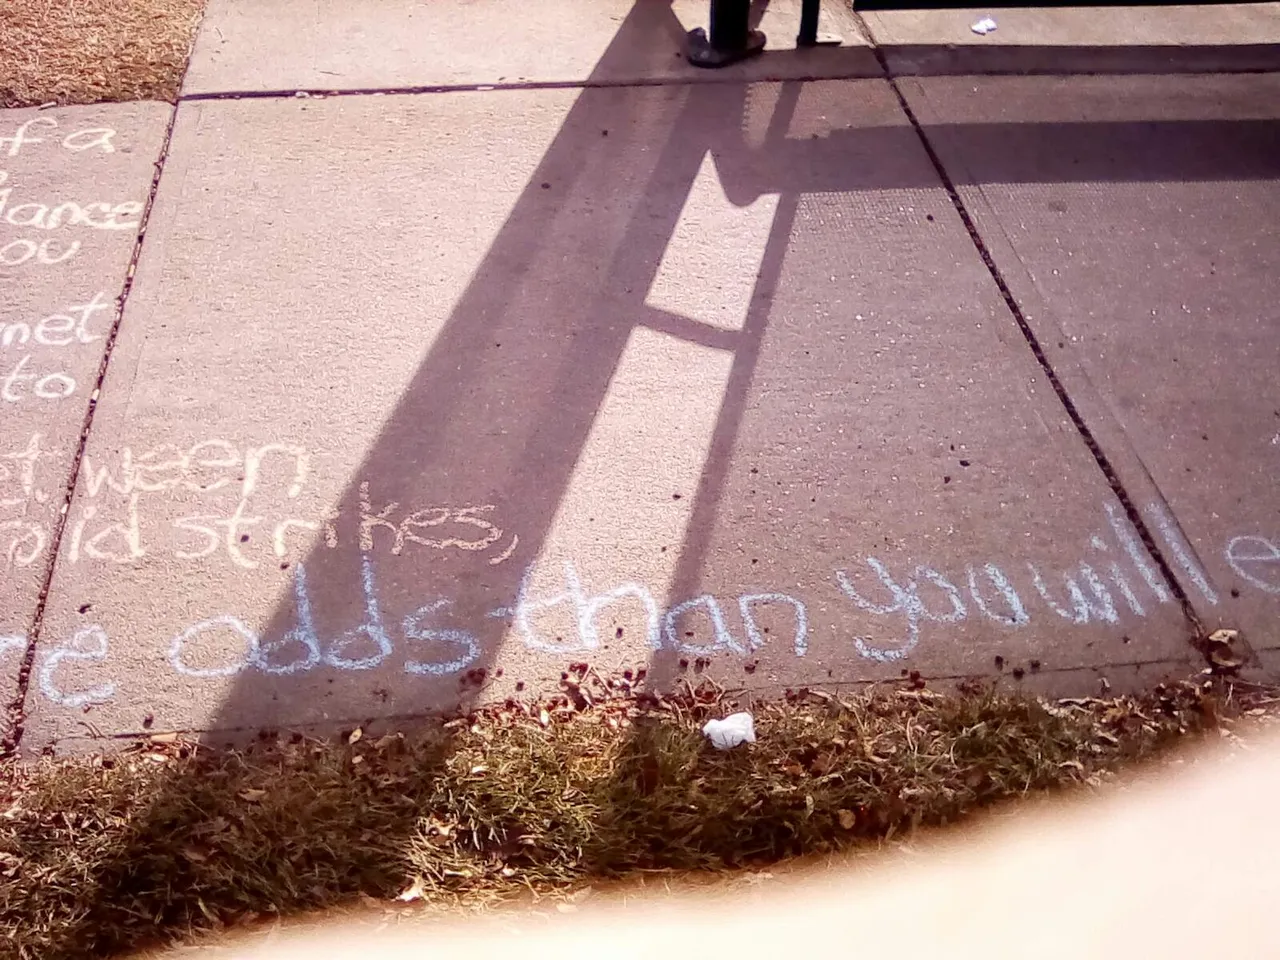 of a
lance
you
met
to
t. ween
pid strikes,
e odds than you will e